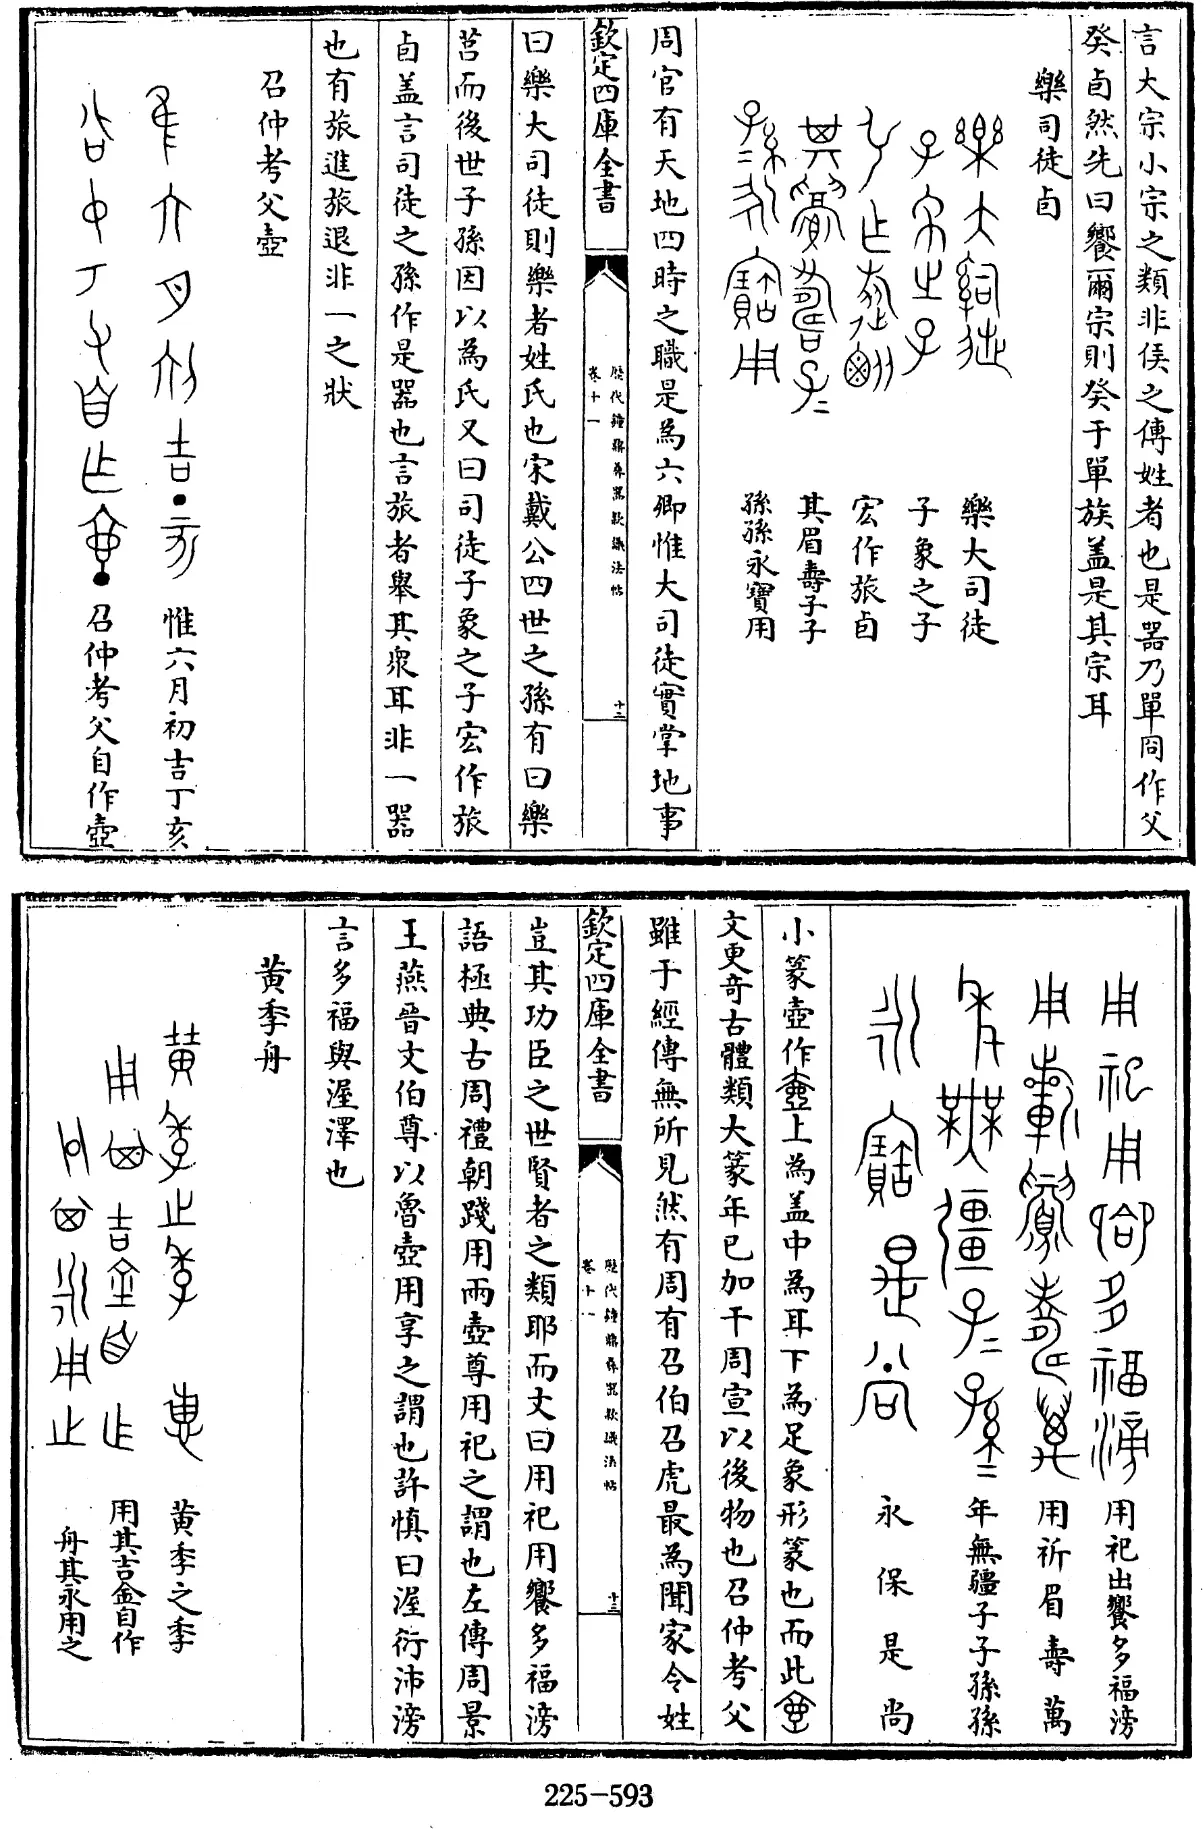 言大宗小宗之類非侯之傳姓者也是器乃單冏作父
癸卣然先曰饗爾宗則癸于單族盖是其宗耳
樂司徒卣
樂大司徒
子象之子
宏作旅卣
其眉壽子子
孫孫永寶用
周官有天地四時之職是為六卿惟大司徒實掌地事
欽定四庫全書
歷代鐘鼎彝器款識法帖
卷十一
十二
曰樂大司徒則樂者姓氏也宋戴公四世之孫有曰樂
莒而後世子孫因以為氏又曰司徒子象之子宏作旅
卣盖言司徒之孫作是器也言旅者舉其衆耳非一器
也有旅進旅退非一之狀
召仲考父壺
惟六月初吉丁亥
召仲考父自作壺
用祀出饗多福滂
用祈眉壽萬
年無疆子子孫孫
永保是尚
小篆壺作壺上為盖中為耳下為足象形篆也而此
文更竒古體類大篆年已加干周宣以後物也召仲考父
雖于經傳無所見然有周有召伯召虎最為聞家令姓
欽定四庫全書
歷代鐘鼎彝器款識法帖
卷十一
十三
豈其功臣之世賢者之類耶而文曰用祀用饗多福滂
語極典古周禮朝踐用兩壺尊用祀之謂也左傳周景
王燕晉文伯尊以魯壺用享之謂也許慎曰渥衍沛滂
言多福與渥澤也
黄季舟
黄季之季
用其吉金自作
舟其永用之
225-593